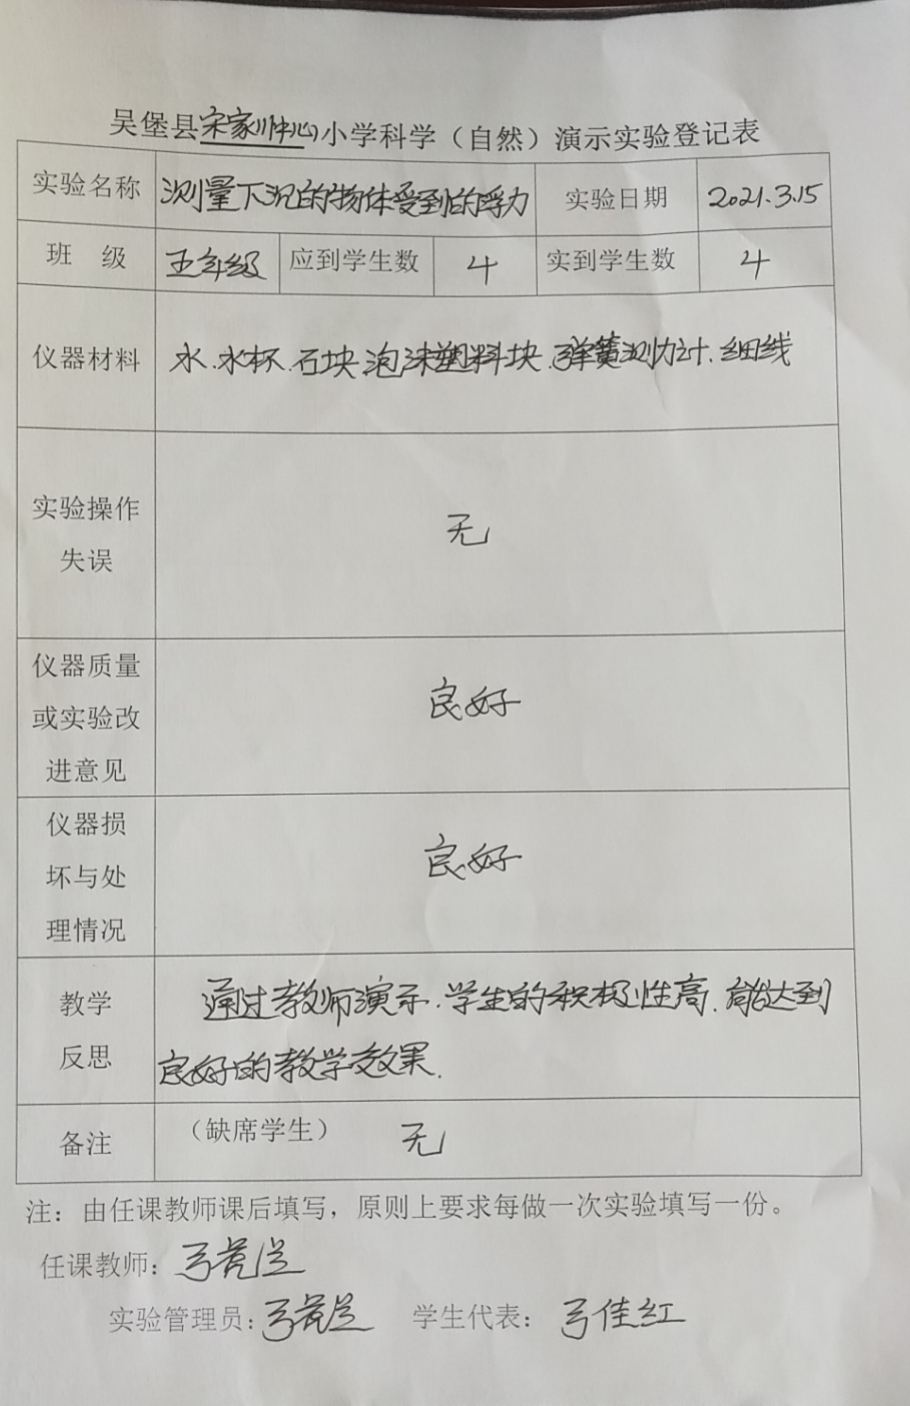 吴堡县宋家川中心小学科学（自然）演示实验登记表
实验名称 测量下沉的物体受到的浮力 实验日期 2021.3.15
班 级 五年级 应到学生数 4 实到学生数 4
仪器材料 水.水杯.石块.泡沫塑料块.弹簧测力计.细线
实验操作
失误
无
仪器质量
或实验改
进意见
良好
仪器损
坏与处
理情况
良好
教学
反思
通过教师演示.学生的积极性高.能达到
良好的教学效果.
备注 （缺席学生） 无
注：由任课教师课后填写，原则上要求每做一次实验填写一份。
任课教师：弓
实验管理员：弓 学生代表：弓佳红